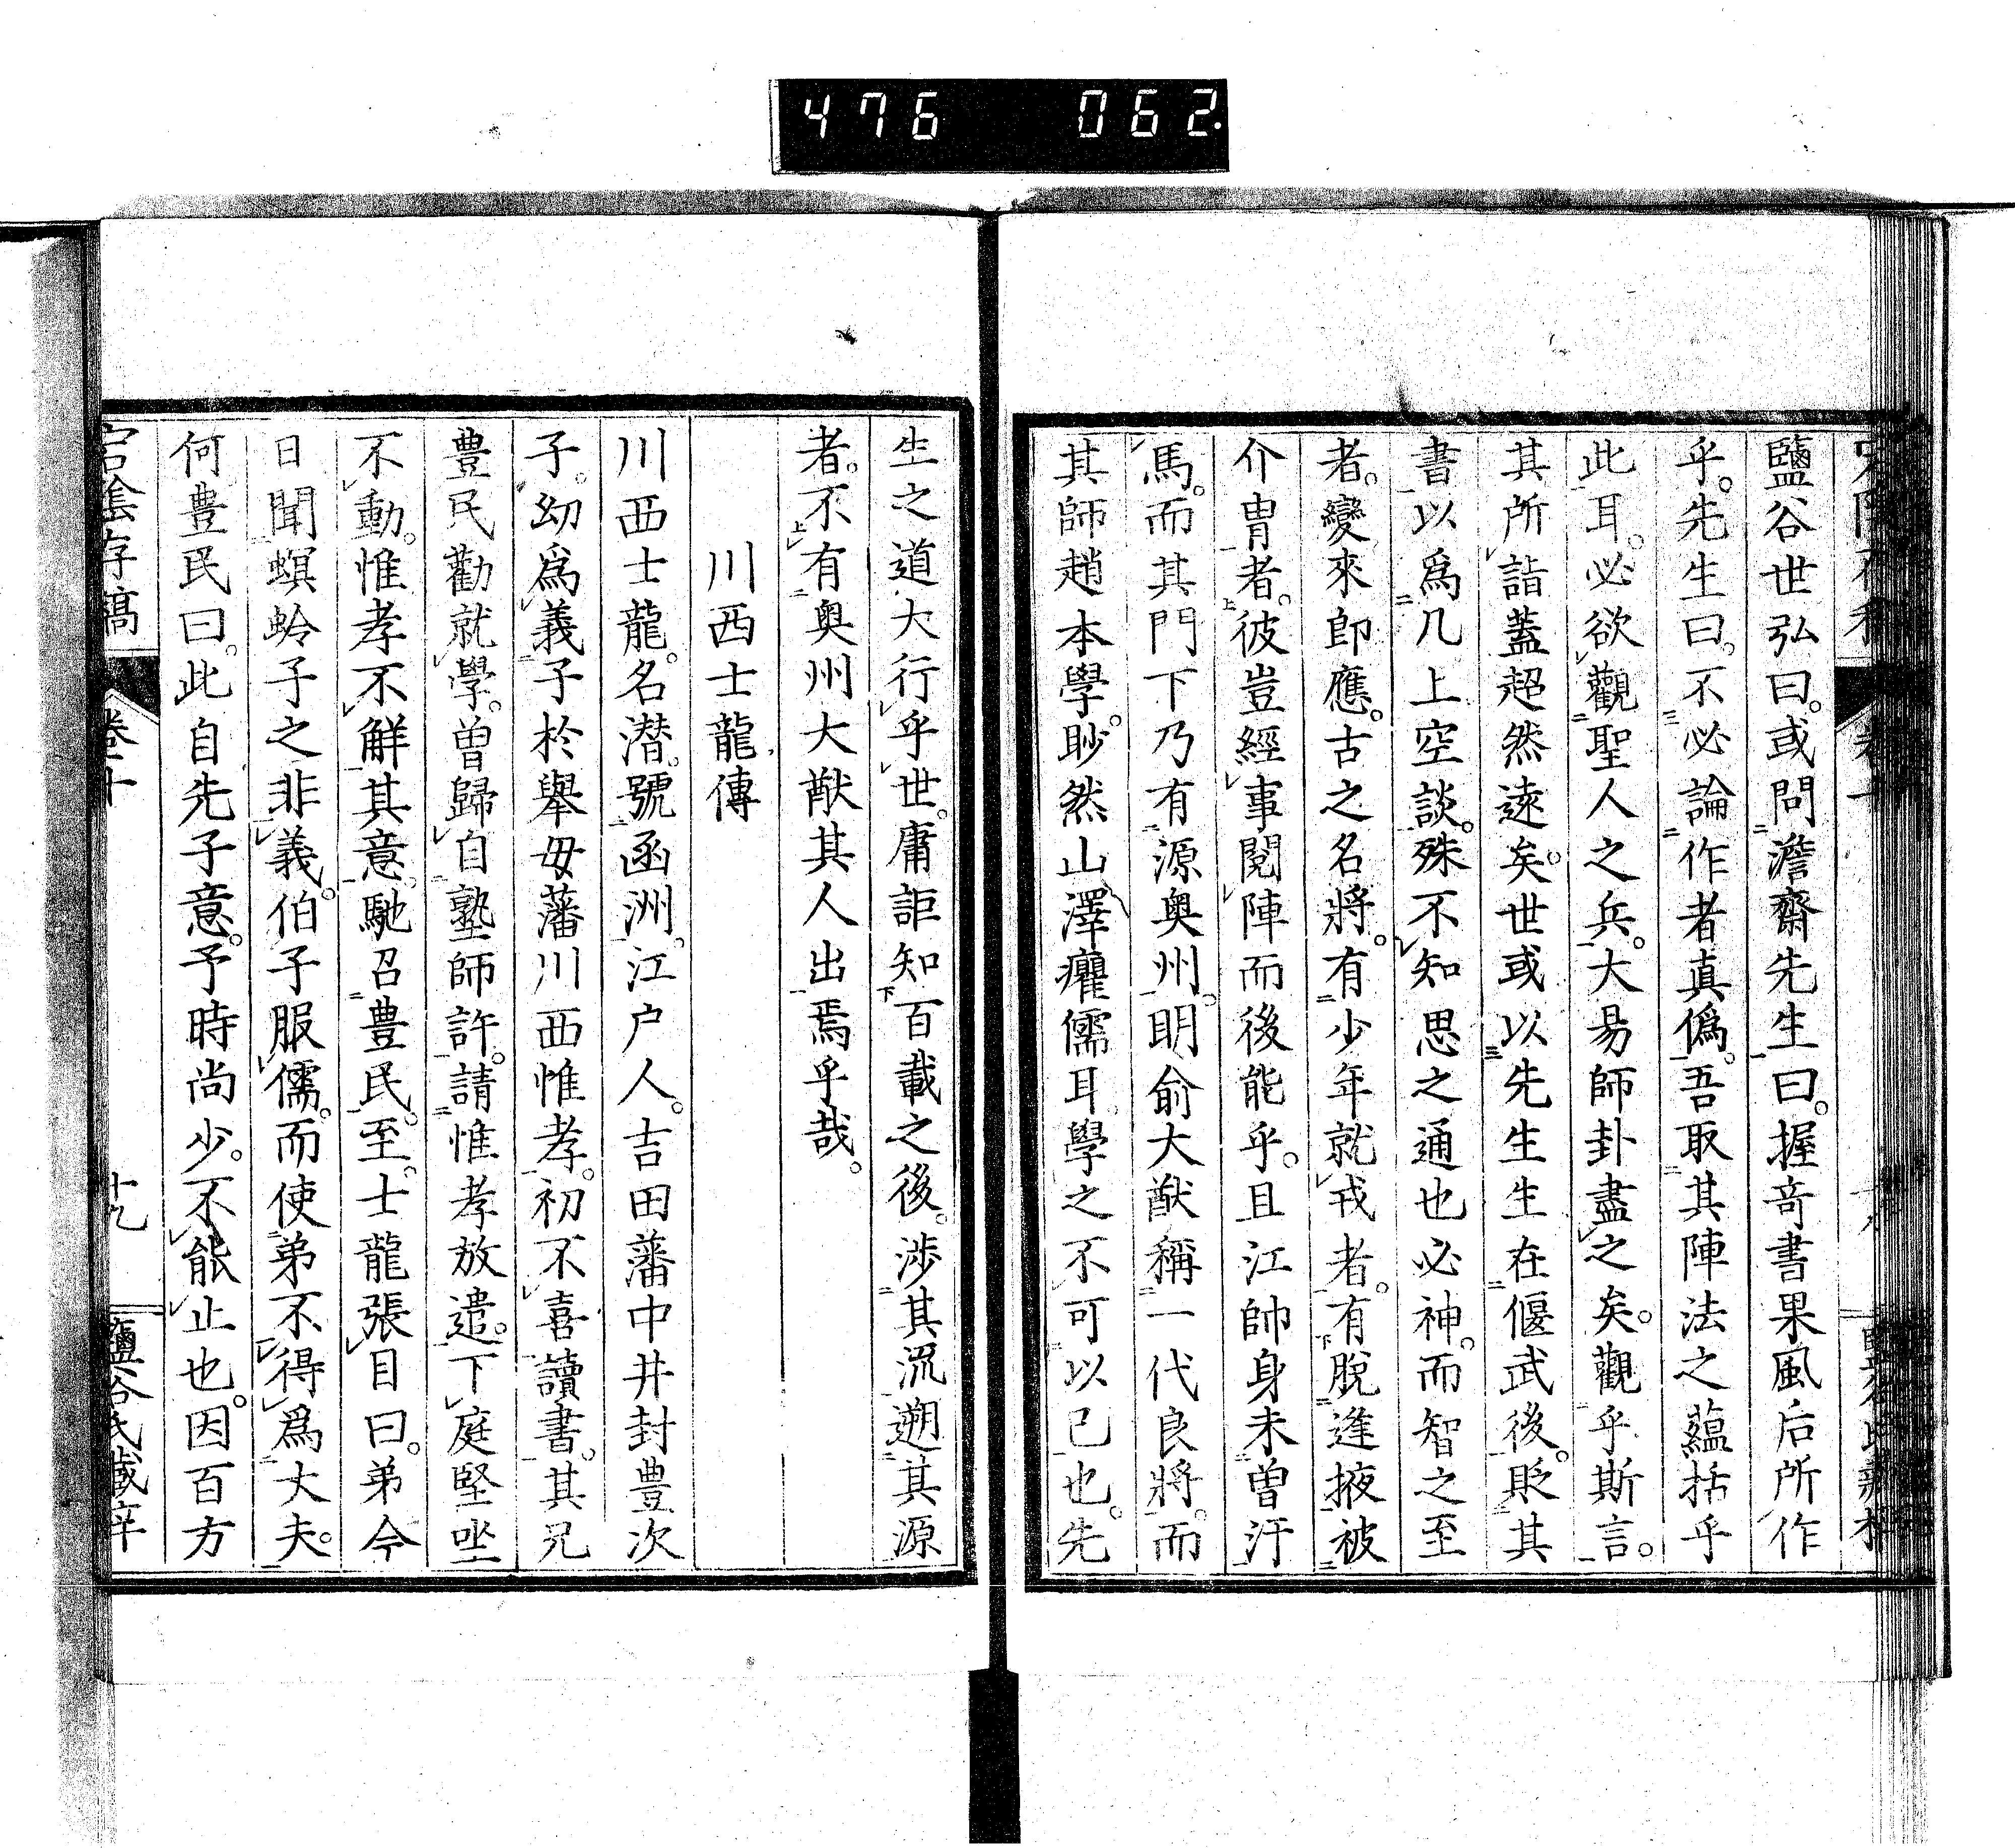 476 062
鹽谷世弘曰。或問澹齋先生曰。握奇書果風后所作
乎。先生曰。不必論作者真僞。吾取其陣法之蘊括乎
此耳。必欲觀聖人之兵。大易師卦盡之矣。觀乎斯言。
其所詣蓋超然遠矣。世或以先生生在偃武後。貶其
書以爲几上空談。殊不知思之通也必神。而智之至
者。變來卽應。古之名將。有少年就戎者。有脫逢掖被
介胄者。彼豈經事閱陣而後能乎。且江帥身未曾汗
馬。而其門下乃有源奥州。明俞大猷稱一代良將。而
其師趙本學。眇然山澤癯儒耳學之不可以已也。先
生之道大行乎世。庸詎知百載之後。涉其流遡其源
者。不有奥州大猷其人出焉乎哉。
川西士龍傳
川西士龍。名潜。號函洲。江户人。吉田藩中井封豊次
子。幼爲義子於舉母藩川西惟孝。初不喜讀書。其兄
豊民勸就學。曽歸自塾師許。請惟孝放遣。下庭堅坐
不動。惟孝不觧其意。馳召豊民。至。士龍張目曰。弟今
日聞螟蛉子之非義。伯子服儒。而使弟不得爲大夫。
何豊民曰。此自先子意。予時尚少。不能止也。因百方
宕陰存稿
卷十
十九
鹽谷氏藏弆